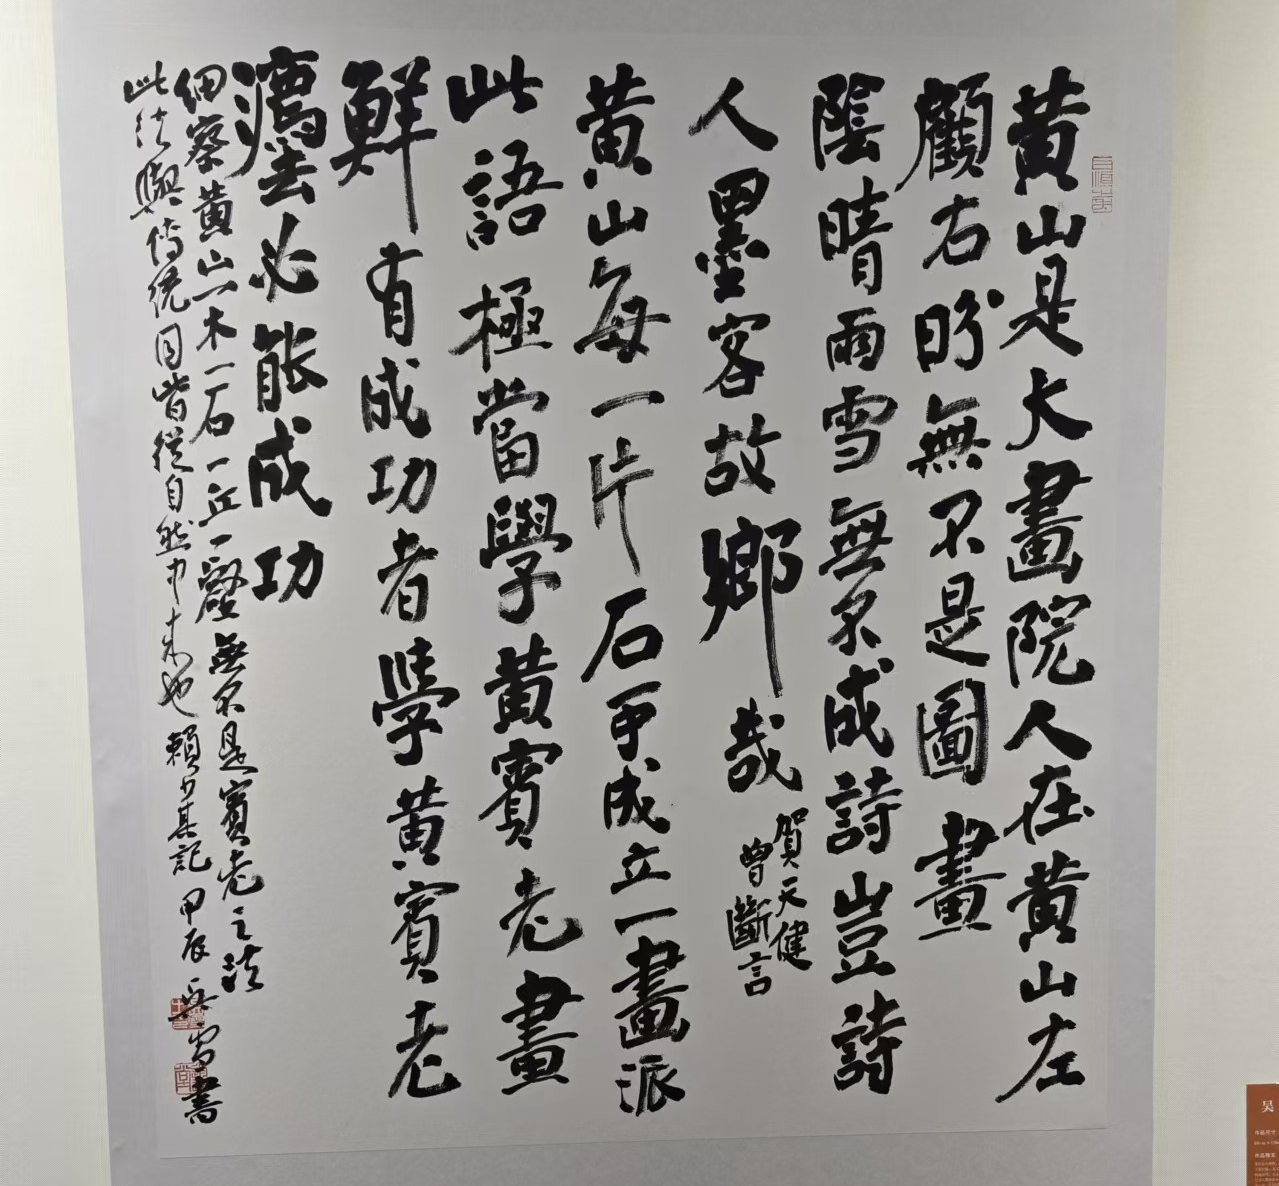 黄山是大畫院人在黄山左
顧右盼無不是圖畫
陰晴雨雪無不成詩豈詩
人墨客故鄉哉
賀天健
曾斷言
黄山每一片石可成立一畫派
此語極當學黄賓老畫
鮮有成功者學黄賓老
必能成功
細察黄山一木一石一丘一壑無不是賓老之法
此法與傳統同皆從自然中来也賴少其記甲辰吳雪書
吴